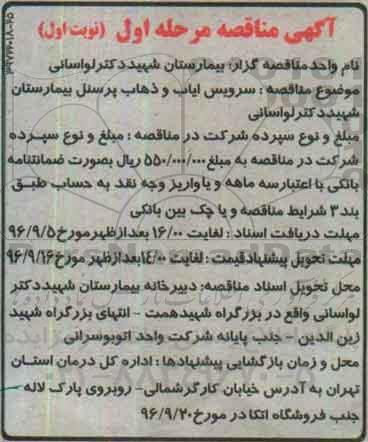 آگهی مناقصه مرحله اول (نوبت اول)
نام واحد مناقصه گزار: بیمارستان شهید دکتر لواسانی
موضوع مناقصه : سرویس ایاب و ذهاب پرسنل بیمارستان
شهید دکتر لواسانی
مبلغ و نوع سپرده شرکت در مناقصه : مبلغ و نوع سپرده
شرکت در مناقصه به مبلغ ۵۵۰/۰۰۰/۰۰۰ ریال بصورت ضمانتنامه
بانکی با اعتبار سه ماهه و یا واریز وجه نقد به حساب طبق
بند ۳ شرایط مناقصه و یا چک بین بانکی
مهلت دریافت اسناد : لغایت ۱۶/۰۰ بعدازظهر مورخ ۹۶/۹/۵
مهلت تحویل پیشنهاد قیمت : لغایت ۱۴/۰۰ بعدازظهر مورخ ۹۶/۹/۱۶
محل تحویل اسناد مناقصه: دبیرخانه بیمارستان شهید دکتر
لواسانی واقع در بزرگراه شهید همت - انتهای بزرگراه شهید
زین الدین - جنب پایانه شرکت واحد اتوبوسرانی
محل و زمان بازگشایی پیشنهادها : اداره کل درمان استان
تهران به آدرس خیابان کارگر شمالی - روبروی پارک لاله -
جنب فروشگاه اتکا در مورخ ۹۶/۹/۲۰